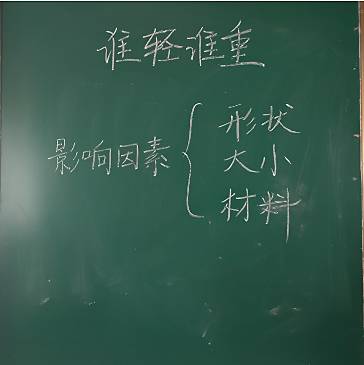 谁轻谁重
形状
影响因素{大小
材料